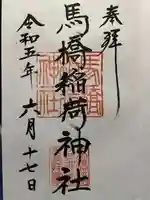 奉拝
馬橋稲荷神社
令和五年 六月十七日